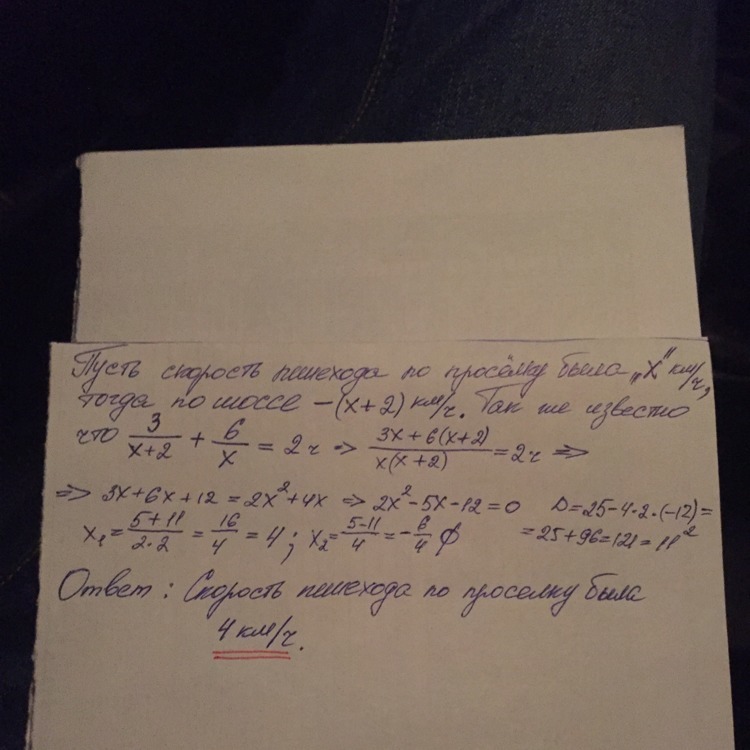 Пусть скорость пешехода по просёлку была „X" км/ч,
тогда по шоссе – (x+2) км/ч. Так же известно
что 3/(x+2) + 6/x = 2ч => (3x+6(x+2))/(x(x+2)) = 2ч =>
=> 3x+6x+12 = 2x²+4x => 2x²-5x-12=0 D=25-4·2·(-12)=
x₁ = (5+11)/(2·2) = 16/4 = 4; x₂ = (5-11)/4 = -6/4 ∅ = 25+96=121=11²
Ответ: Скорость пешехода по проселку была
4 км/ч.